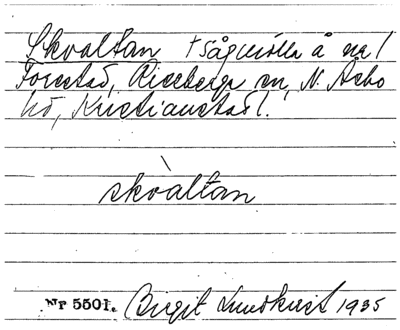 Skvaltan †sågmölla å na/
Forestad, Riseberga sn, N. Åsbo
hd, Kristianstad l.
skvàltan
Nr 5501. Birgit Lundkvist 1935